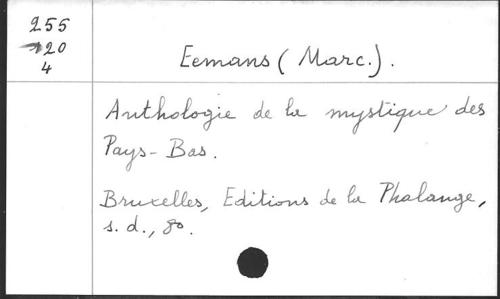 255
120
4
Eemans (Marc.).
Anthologie de la mystique des
Pays-Bas.
Bruxelles, Editions de la Phalange,
s. d., 8o.